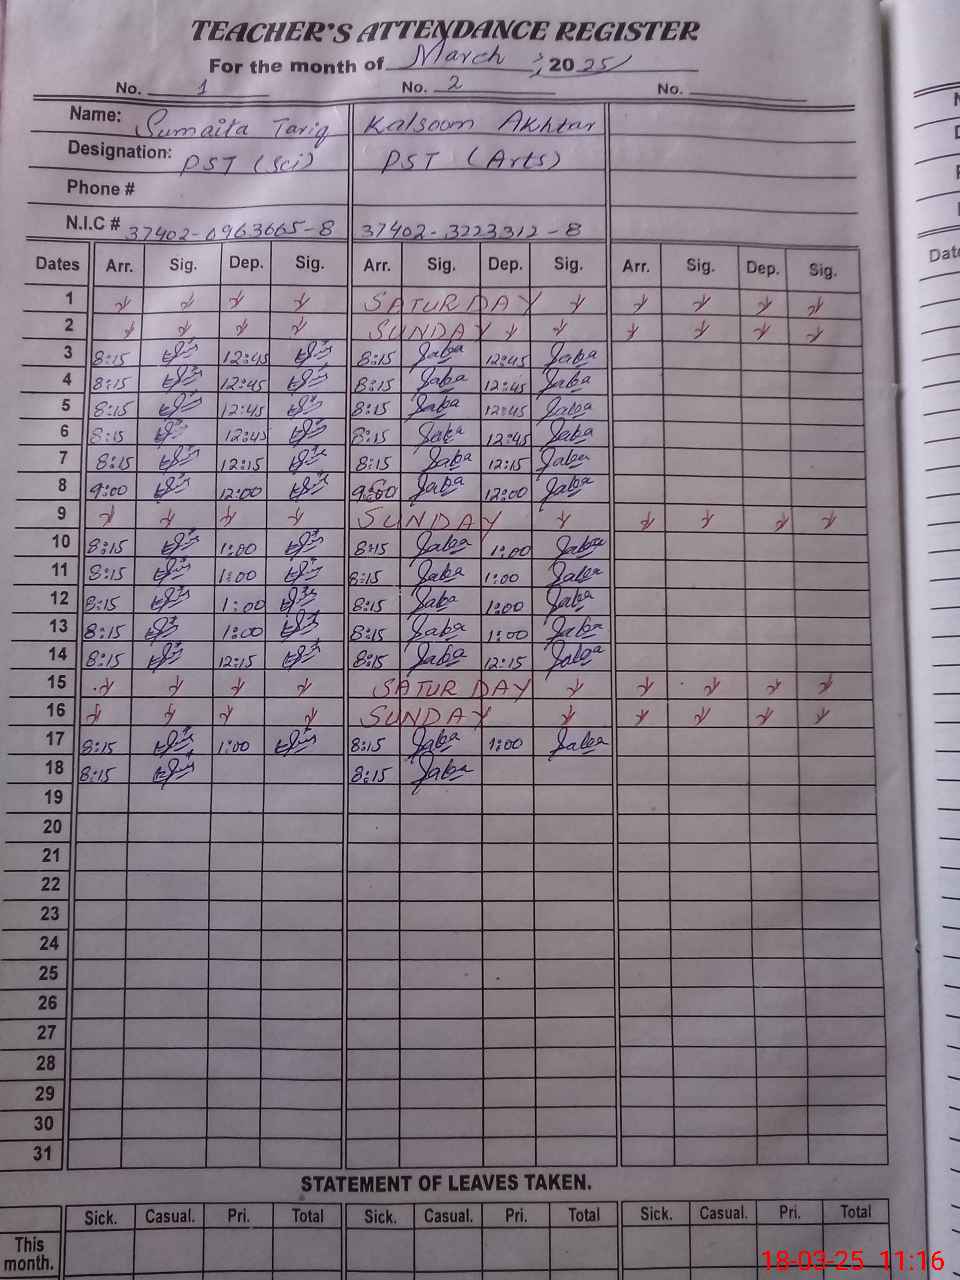 TEACHER'S ATTENDANCE REGISTER
For the month of March 2025
No. 1 No. 2 No.
Name: Sumaita Tariq Kalsoom Akhtar
Designation: PST (Sci) PST (Arts)
Phone #
N.I.C # 37402-0963665-8 37402-3223312-8
Dates Arr. Sig. Dep. Sig. Arr. Sig. Dep. Sig. Arr. Sig. Dep. Sig.
1 SATURDAY
2 SUNDAY
3 8:15 12:45 8:15 12:45
4 8:15 12:45 8:15 12:45
5 8:15 12:45 8:15 12:45
6 8:15 12:45 8:15 12:45
7 8:15 12:15 8:15 12:15
8 9:00 12:00 9:00 12:00
9 SUNDAY
10 8:15 1:00 8:15 1:00
11 8:15 1:00 8:15 1:00
12 8:15 1:00 8:15 1:00
13 8:15 1:00 8:15 1:00
14 8:15 12:15 8:15 12:15
15 SATURDAY
16 SUNDAY
17 8:15 1:00 8:15 1:00
18 8:15 8:15
19
20
21
22
23
24
25
26
27
28
29
30
31
STATEMENT OF LEAVES TAKEN.
Sick. Casual. Pri. Total Sick. Casual. Pri. Total Sick. Casual. Pri. Total
This
month.
18-03-25 11:16